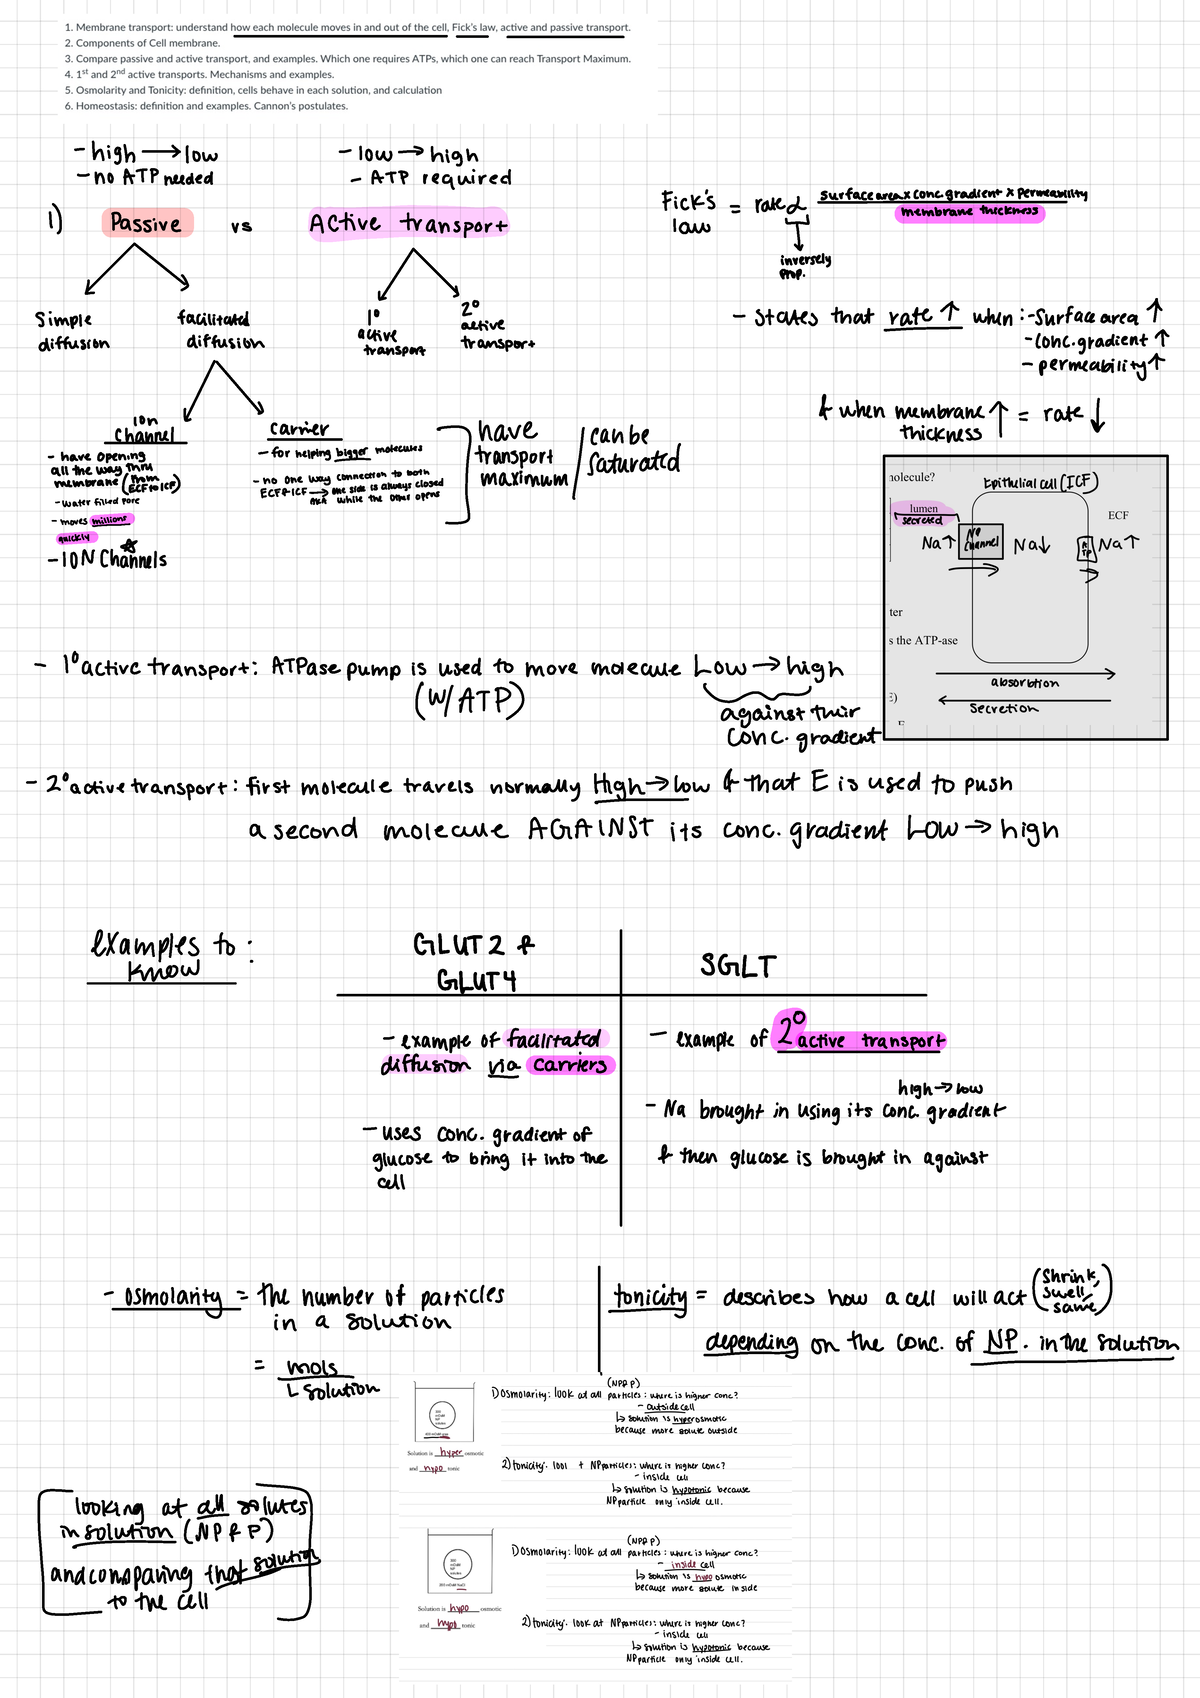 1. Membrane transport: understand how each molecule moves in and out of the cell, Fick's law, active and passive transport.
2. Components of Cell membrane.
3. Compare passive and active transport, and examples. Which one requires ATPs, which one can reach Transport Maximum.
4. 1st and 2nd active transports. Mechanisms and examples.
5. Osmolarity and Tonicity: definition, cells behave in each solution, and calculation
6. Homeostasis: definition and examples. Cannon's postulates.
- high → low
- no ATP needed
- low → high
- ATP required
1) Passive vs Active transport
Simple diffusion
facilitated diffusion
1° active transport
2° active transport
Fick's law = rate α surface area x conc. gradient x Permeability
membrane thickness
inversely prop.
- states that rate ↑ when: - Surface area ↑
- conc. gradient ↑
- permeability ↑
& when membrane thickness ↑ = rate ↓
ion Channel
- have opening
all the way thru
membrane (from ECF to ICF)
- water filled pore
- moves millions
quickly
- ION Channels
Carrier
- for helping bigger molecules
- no one way connection to both
ECF & ICF → one side is always closed
AKA while the other opens
have transport maximum / can be saturated
nolecule?
Epithelial cell (ICF)
lumen
secreted
ECF
Na↑
Na channel
Na↓
ATP
Na↑
ter
s the ATP-ase
absorbtion
Secretion
E)
- 1° active transport: ATPase pump is used to move molecule Low → high
(W/ ATP)
against their
conc. gradient
- 2° active transport: first molecule travels normally High → low & that E is used to push
a second molecule AGAINST its conc. gradient Low → high
examples to know:
GLUT 2 &
GLUT4
SGLT
- example of facilitated
diffusion via carriers
- uses conc. gradient of
glucose to bring it into the
cell
- example of 2° active transport
high → low
- Na brought in using its conc. gradient
& then glucose is brought in against
- osmolarity = the number of particles
in a solution
= mols
L solution
tonicity = describes how a cell will act (Shrink, swell, same)
depending on the conc. of NP. in the solution
300 mOsM NP solution
Solution is hyper osmotic
and hypo tonic
(NP & P)
1) Osmolarity: look at all particles: where is higher conc?
- outside cell
↳ solution is hyperosmotic
because more solute outside
2) tonicity: NP particles: where is higher conc?
- inside cell
↳ solution is hypotonic because
NP particle only inside cell.
looking at all solutes
in solution (NP & P)
and comparing that solution
to the cell
300 mOsM NP solution
Solution is hypo osmotic
and hypo tonic
(NP & P)
1) Osmolarity: look at all particles: where is higher conc?
- inside cell
↳ solution is hypo osmotic
because more solute inside
2) tonicity: look at NP particles: where is higher conc?
- inside cell
↳ solution is hypotonic because
NP particle only inside cell.